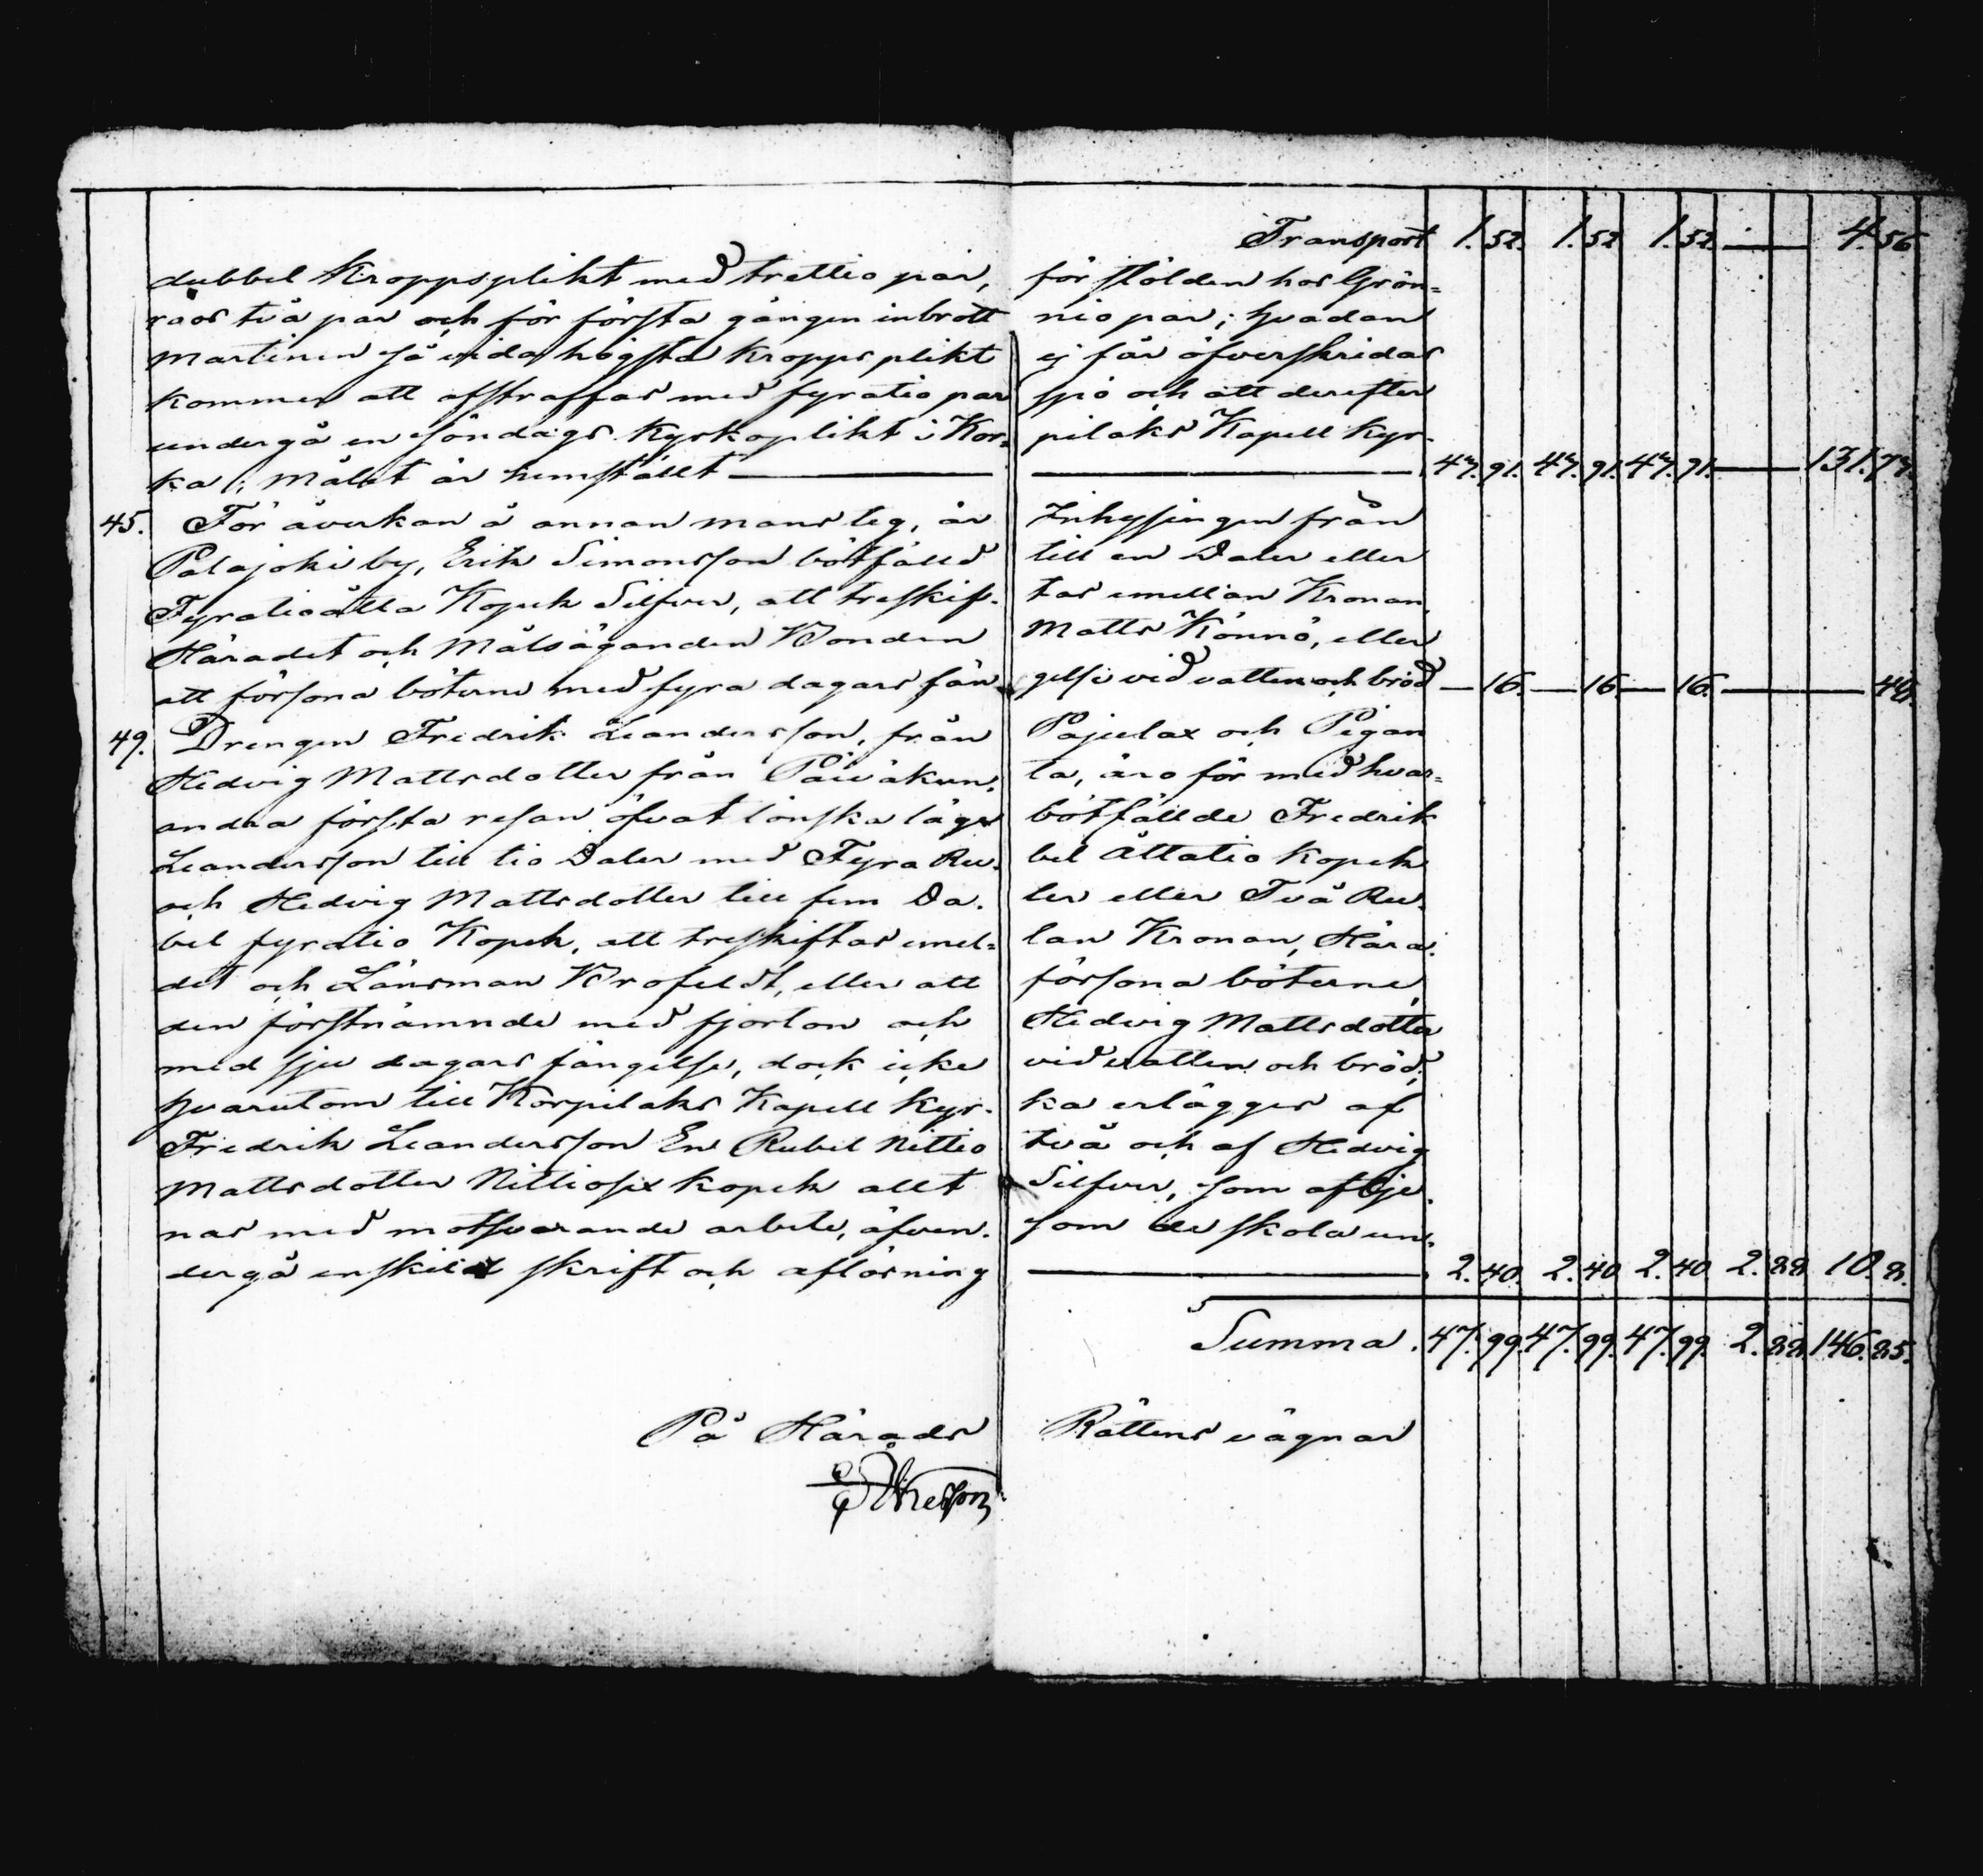 Transport 1.52. 1.52 1.52 — 4.56
dubbel Kroppsplikt med trettio par, för stölden hos Grön-
roos två par och för första gången inbrott nio par; hvadan
Martinen så vida högsta Kroppsplikt ej får öfverskridas
kommer att afstraffas med fyratio par spö och att derefter
undergå en Söndags Kyrkoplikt i Kor- pilaks Kapell Kyr-
ka; målet är hemstäldt — 131.77.
45. För åverkan å annan mans teg, är Inhysingen från
Palajoki by, Erik Simonsson bötfälld till en Daler eller
Fyratioåtta Kopek Silfver, att treskif- tas emellan Kronan,
Häradet och Målsäganden Bonden Matts Könnö, eller
att försona böterne med fyra dagars fän- gelse vid vatten och bröd — 16. — 16 — 16. — 48.
49. Drengen Fredrik Leandersson, från Pajulax och Pigan
Hedvig Mattsdotter från Päiväkun- ta, äro för med hvar-
andra första resan öfvat lönskaläge bötfällde Fredrik
Leandersson till tio Daler med Fyra Ru- bel Åttatio Kopek
och Hedvig Mattsdotter till fem Da- ler eller Två Ru-
bel fyratio Kopek, att treskiftas emel- lan Kronan, Hära-
det och Länsman Brofeldt, eller att försona böterne,
den förstnämnde med fjorton och Hedvig Mattsdotter
med sju dagars fängelse, dock icke vid vatten och bröd,
hvarutom till Korpilaks Kapell Kyr- ka erlägges af
Fredrik Leandersson En Rubel Nittio två och af Hedvig
Mattsdotter Nittiosex kopek allt Silfver, som aftje-
nas med motsvarande arbete, äfven- som de skola un-
dergå enskild skrift och aflösning — 2.40. 2.40 2.40 2.88 10.8.
Summa. 47.99. 47.99. 47.99. 2.88 146.85.
På Härads Rättens vägnar